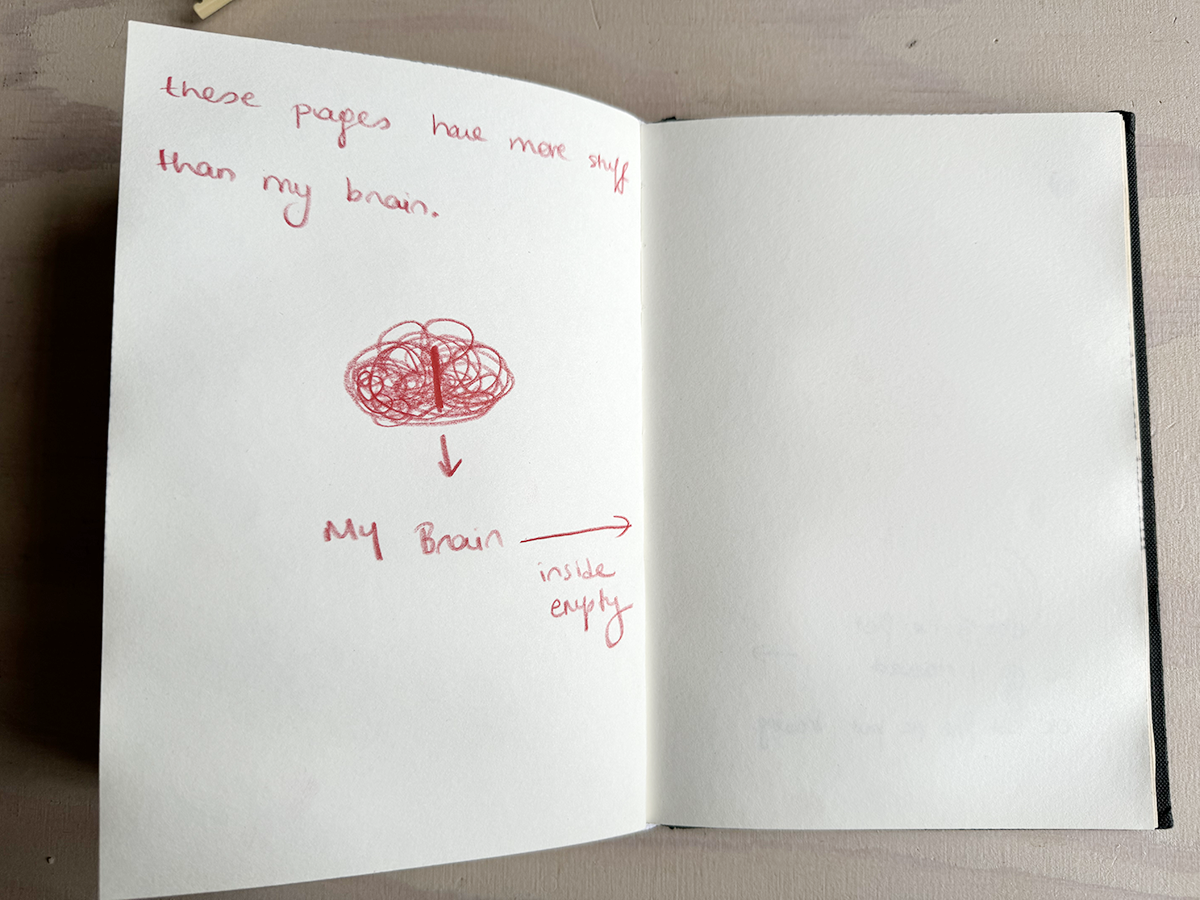 these pages have more stuff
than my brain.
My Brain
inside
empty